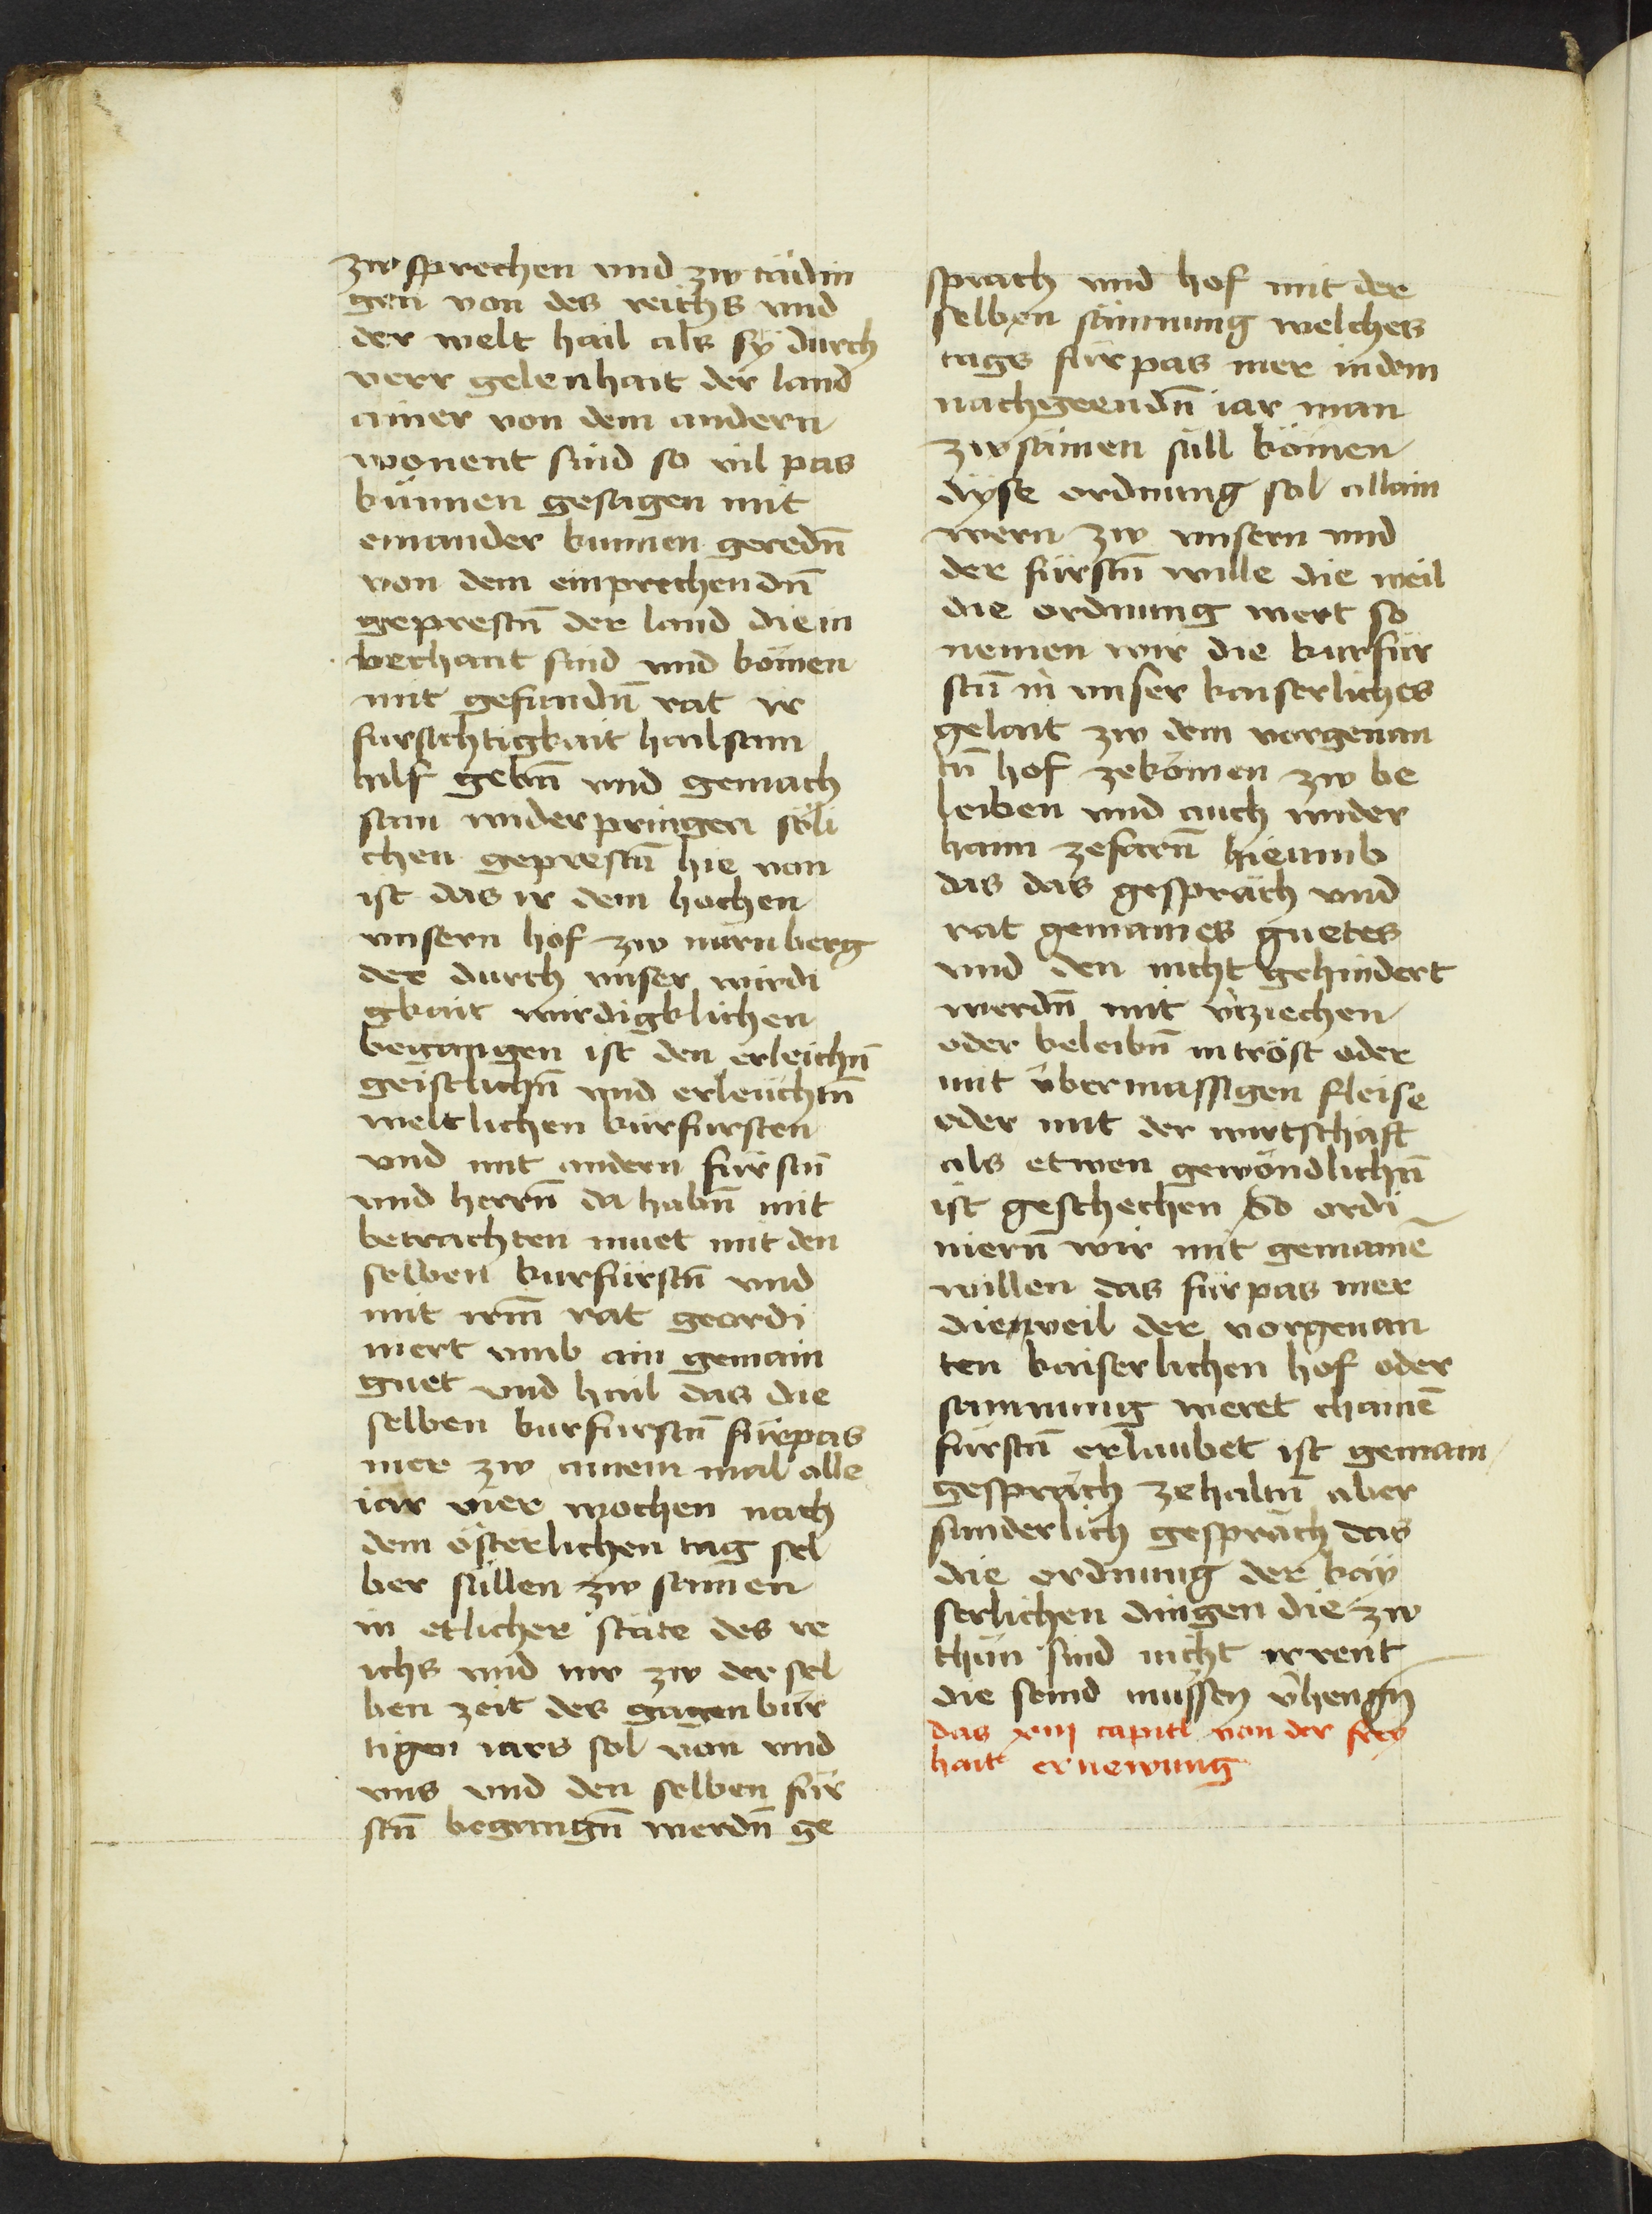 zw sprechen vnd zw tädin
gen von des reichs vnd
der welt hail als sÿ durch
verr gelenhait der land
ainer von dem andern
wonent sind so vil pas
künnen gesagen mit
einander kunnen geredn̄
von dem einprechendn̄
geprestn̄ der land die in
bechant sind vnd kömen
mit gefundn̄ rat ir
fursichtigkait hailsam
hilf gebn̄ vnd gemach
sam widerpringen söli
chen geprestn̄ hie von
ist das ir dem hochen
vnsern hof zw nürnberg
der durch vnser wirdi
gkait wirdigklichen
begangen ist den erleichn̄
geistlichn̄ vnd erleüchtn̄
weltlichen kurfursten
vnd mit andern fürstn̄
vnd herrn̄ da habn̄ mit
betrachten muet mit den
selben kurfürstn̄ vnd
mit irm̄ rat geordi
niert vmb ain gemain
guet vnd hail das die
selben kurfurstn̄ fürpas
mer zw ainem mal alle
iar vier wochen nach
dem österlichen tag sel
ber süllen zw samen
in etlicher stäte des re
ichs vnd nw zw der sel
ben zeit des gagenbür
tigen iars sol von vnd
vns vnd den selben für
stn̄ begangn̄ werdn̄ ge
sprach vnd hof mit der
selben sämnung welches
tags fürpas mer in dem
nachgeendn̄ iar man
zwsamen süll kömen
dÿse ordnung sol allain
wern zw vnsern vnd
der fürstn̄ wille die weil
die ordnung wert so
nemen wir die kurfür
stn̄ in vnser kaiserliches
gelait zw dem vorgenan
tn̄ hof zekömen zw be
leiben vnd auch wider
haim zefarn̄ hieumb
das das gespräch vnd
rat gemaines guetes
vnd den nicht gehindert
werdn̄ mit v̄rziechen
oder beleibn̄ in tröst oder
mit v̈bermassigen fleise
oder mit der wirtschaft
als etwen gewöndlichn̄
ist geschechen So ordi
niern̄ wir mit gemainē
willen das fürpas mer
dieweil der vorgenan
ten kaiserlichen hof oder
samnung weret chainē
fürstn̄ erlaubet ist gemain
gespräch zehaltn̄ aber
sunderlich gespräch das
die ordnung der kaÿ
serlichen dingen die zw
thün sind nicht irrent
die seind mussen v̄hengn̄
das xiij capitl von der frey
hait ernewung